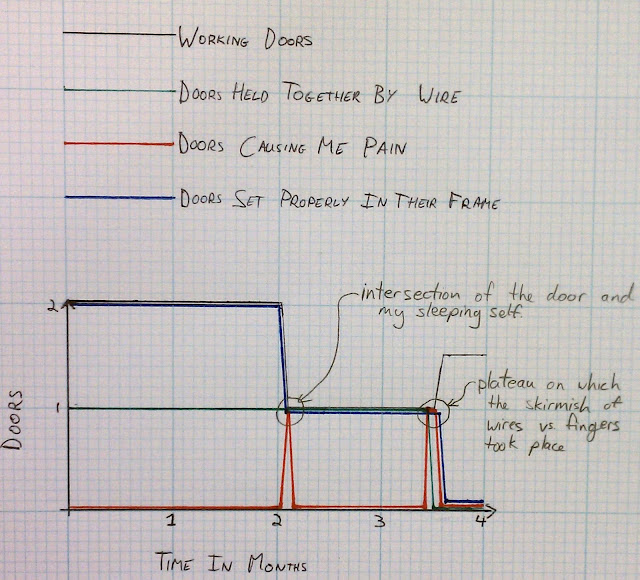 WORKING DOORS
DOORS HELD TOGETHER BY WIRE
DOORS CAUSING ME PAIN
DOORS SET PROPERLY IN THEIR FRAME
intersection of the door and
my sleeping self.
plateau on which
the skirmish of
wires vs. fingers
took place
2
1
DOORS
1 2 3 4
TIME IN MONTHS